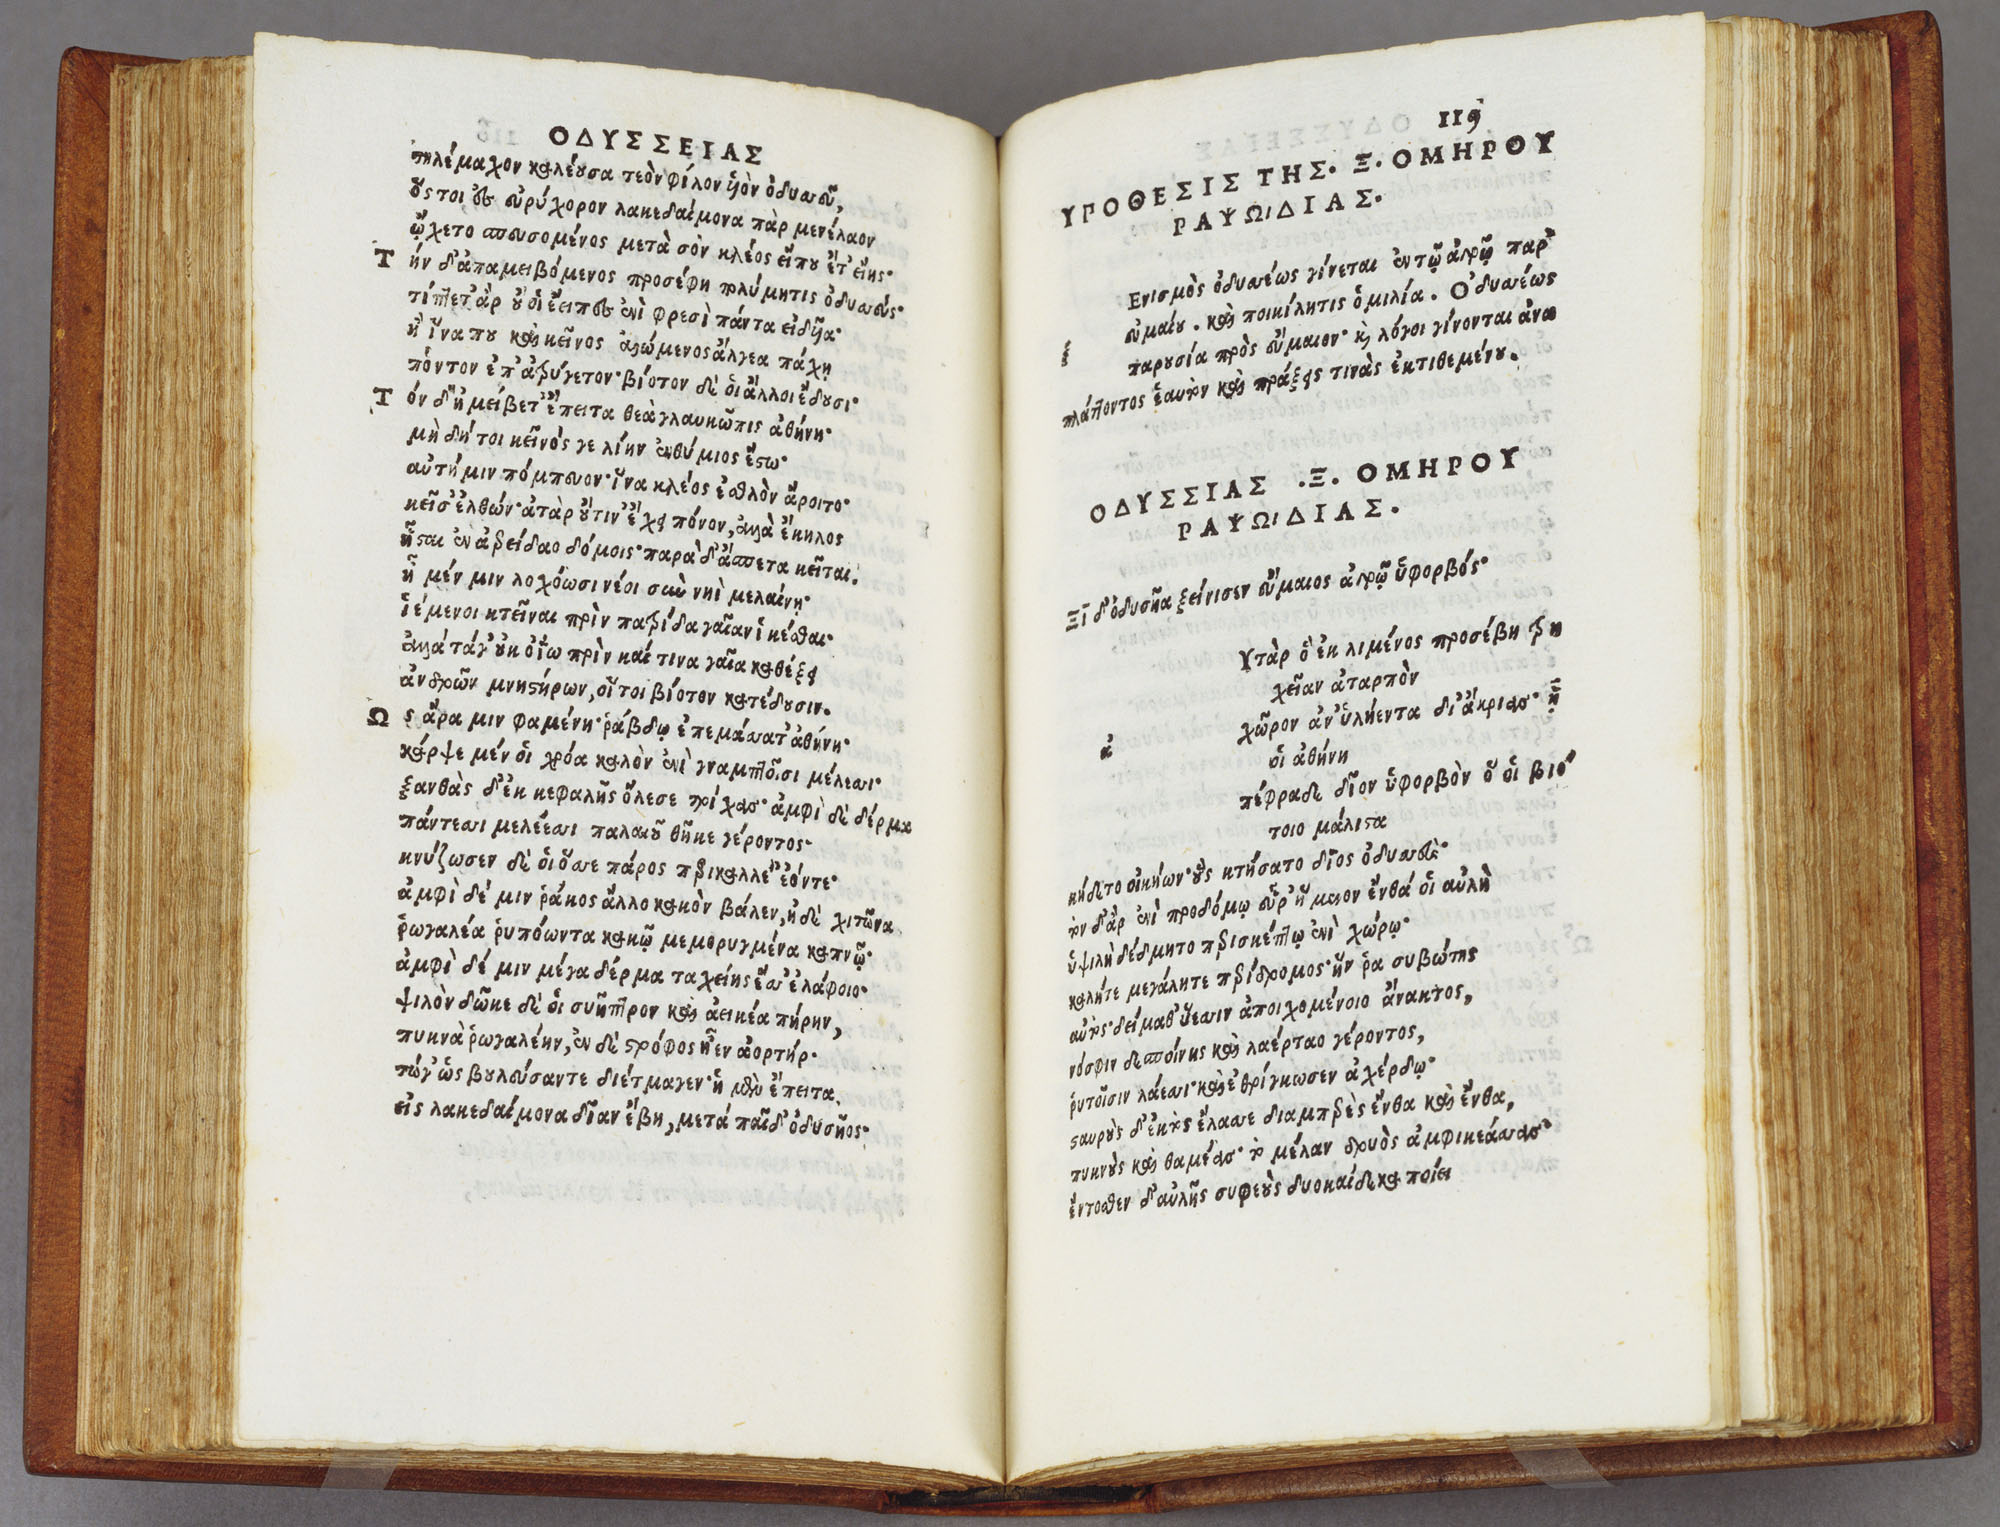 ΟΔΥΣΣΕΙΑΣ
τηλέμαχον καλέουσα τεὸν φίλον ὑὸν ὀδυσσεῦ,
ὅς τοι ἐς εὐρύχορον λακεδαίμονα πὰρ μενέλαον
ᾤχετο πευσομένος μετὰ σὸν κλέος εἴ που ἔτ' εἴης·
Τ ὴν δ' ἀπαμειβόμενος προσέφη πολύμητις ὀδυσσεύς·
τίπτετ' ἂρ οὔ οἱ ἔειπες ἐνὶ φρεσὶ πάντα εἰδῆα·
ἢ ἵνα που καὶ κεῖνος ἀλώμενος ἄλγεα πάχῃ
πόντον ἐπ' ἀτρύγετον· βίοτον δέ οἱ ἄλλοι ἔδουσι·
Τ ὸν δ' ἠμείβετ' ἔπειτα θεὰ γλαυκῶπις ἀθήνη·
μὴ δή τοι κεῖνός γε λίην ἐνθύμιος ἔστω·
αὐτή μιν πόμπευον· ἵνα κλέος ἐσθλὸν ἄροιτο·
κεῖσ' ἐλθών· ἀτὰρ οὔτιν' ἔχει πόνον, ἀλλὰ ἕκηλος
ἧσται ἐν ἀτρείδαο δόμοις· παρὰ δ' ἄσπετα κεῖται.
ἦ μέν μιν λοχόωσι νέοι σὺν νηὶ μελαίνῃ·
ἱέμενοι κτεῖναι πρὶν πατρίδα γαῖαν ἱκέσθαι·
ἀλλὰ τάγ' οὐκ οἴω πρὶν καί τινα γαῖα καθέξει
ἀνδρῶν μνηστήρων, οἵ τοι βίοτον κατέδουσιν.
Ω ς ἄρα μιν φαμένη· ῥάβδῳ ἐπεμάσσατ' ἀθήνη·
κάρψε μέν οἱ χρόα καλὸν ἐνὶ γναμπτοῖσι μέλεσσι·
ξανθὰς δ' ἐκ κεφαλῆς ὄλεσε τρίχας· ἀμφὶ δὲ δέρμα
πάντεσσι μελέεσσι παλαιοῦ θῆκε γέροντος·
κνύζωσεν δέ οἱ ὄσσε πάρος περικαλλέ' ἐόντε·
ἀμφὶ δέ μιν ῥάκος ἄλλο κακὸν βάλεν, ἠδὲ χιτῶνα
ῥωγαλέα ῥυπόωντα κακῷ μεμορυγμένα καπνῷ·
ἀμφὶ δέ μιν μέγα δέρμα ταχείης ἕσσ' ἐλάφοιο·
ψιλὸν δῶκε δέ οἱ σκῆπτρον καὶ ἀεικέα πήρην,
πυκνὰ ῥωγαλέην, ἐν δὲ στρόφος ἦεν ἀορτήρ·
τώγ' ὣς βουλεύσαντε διέτμαγεν· ἡ μὲν ἔπειτα
εἰς λακεδαίμονα δῖαν ἔβη, μετά παῖδ' ὀδυσῆος·
119
ΥΠΟΘΕΣΙΣ ΤΗΣ. Ξ. ΟΜΗΡΟΥ
ΡΑΨΩΙΔΙΑΣ.
ξ
Ενισμὸς ὀδυσσέως γίνεται ἐν τῷ ἀγρῷ παρ'
εὐμαίου. καὶ ποικίλη τις ὁμιλία. Ὀδυσσέως
παρουσία πρὸς εὔμαιον· καὶ λόγοι γίνονται ἀνα
πλάττοντος ἑαυτὸν καὶ πράξεις τινὰς ἐκτιθεμένου.
ΟΔΥΣΣΙΑΣ .Ξ. ΟΜΗΡΟΥ
ΡΑΨΩΙΔΙΑΣ.
Ξῖ δ' ὀδυσῆα ξείνισεν εὔμαιος ἀγρῷ ὑφορβός·
ἀ
Υτὰρ ὃ ἐκ λιμένος προσέβη τρη
χεῖαν ἀταρπὸν
χῶρον ἀν' ὑλήεντα δι' ἄκριας· ᾗ
οἱ ἀθήνη
πέφραδε δῖον ὑφορβὸν ὅ οἱ βιο
τοιο μάλιστα
κήδετο οἰκήων· οὓς κτήσατο δῖος ὀδυσσεύς·
τὸν δ' ἂρ ἐνὶ προδόμῳ εὗρ' ἥμενον ἔνθά οἱ αὐλὴ
ὑψιλὴ δέδμητο περισκέπτῳ ἐνὶ χώρῳ·
καλήτε μεγάλητε περίδρομος· ἥν ῥα συβώτης
αὐτὸς δείμαθ' ὕεσσιν ἀποιχομένοιο ἄνακτος,
νόσφιν δεσποίνης καὶ λαέρταο γέροντος,
ῥυτοῖσιν λάεσσι· καὶ ἐθρίγκωσεν ἀχέρδῳ·
σταυροὺς δ' ἐκτὸς ἔλασσε διαμπερὲς ἔνθα καὶ ἔνθα,
πυκνοὺς καὶ θαμέας· τὸ μέλαν δρυὸς ἀμφικεάσσας·
ἔντοσθεν δ' αὐλῆς συφεοὺς δυοκαίδεκα ποίει